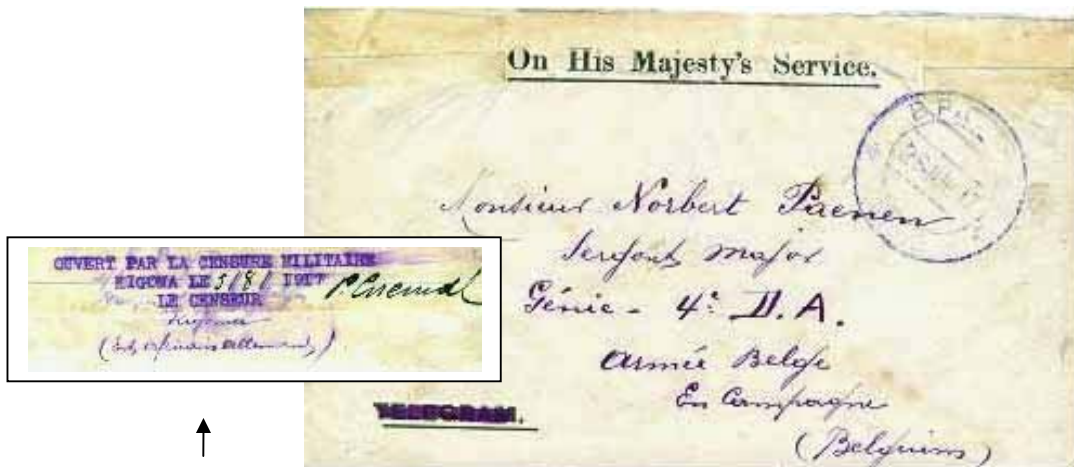 On His Majesty's Service.
Monsieur Norbert Paenen
Sergent major
Génie - 4e D.A.
Armée Belge
En Campagne
(Belgium)
TELEGRAM.
OUVERT PAR LA CENSURE MILITAIRE
KIGOMA LE 5/8/ 1917
LE CENSEUR
Kigoma
(Est Africain Allemand)